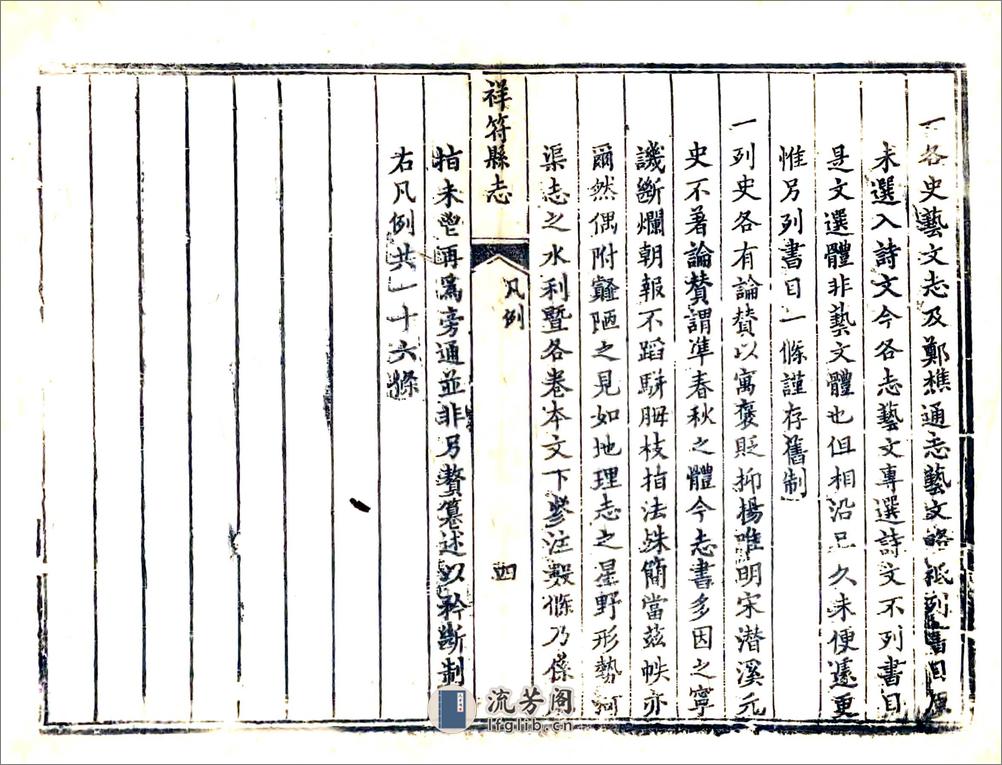 一各史藝文志及鄭樵通志藝文略祗列書目原
未選入詩文今各志藝文專選詩文不列書目
是文選體非藝文體也但相沿已久未便遽更
惟另列書目一條謹存舊制
一列史各有論贊以寓褒貶抑揚唯明宋潛溪元
史不著論贊謂準春秋之體今志書多因之寧
譏斷爛朝報不蹈駢拇枝指法殊簡當茲帙亦
爾然偶附窺陋之見如地理志之星野形勢河
渠志之水利暨各卷本文下參注數條乃係
祥符縣志
凡例
四
指未盡再爲旁通並非另贅纂述以矜斷制
右凡例共一十六條
流芳阁
lfglib.cn